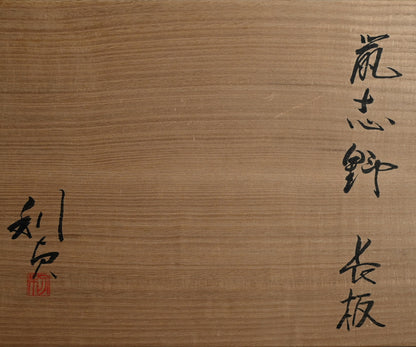 鼠志野 長板
利貞